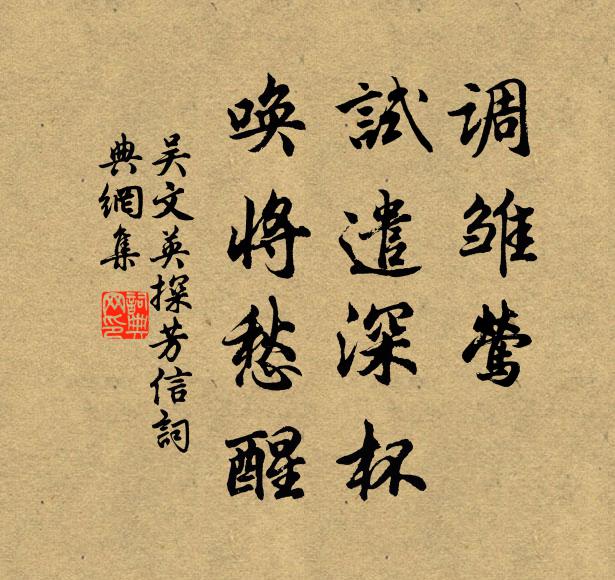 调雏莺
試遣深杯
唤将愁醒
吴文英探芳信詞
典網集
詞典
网印